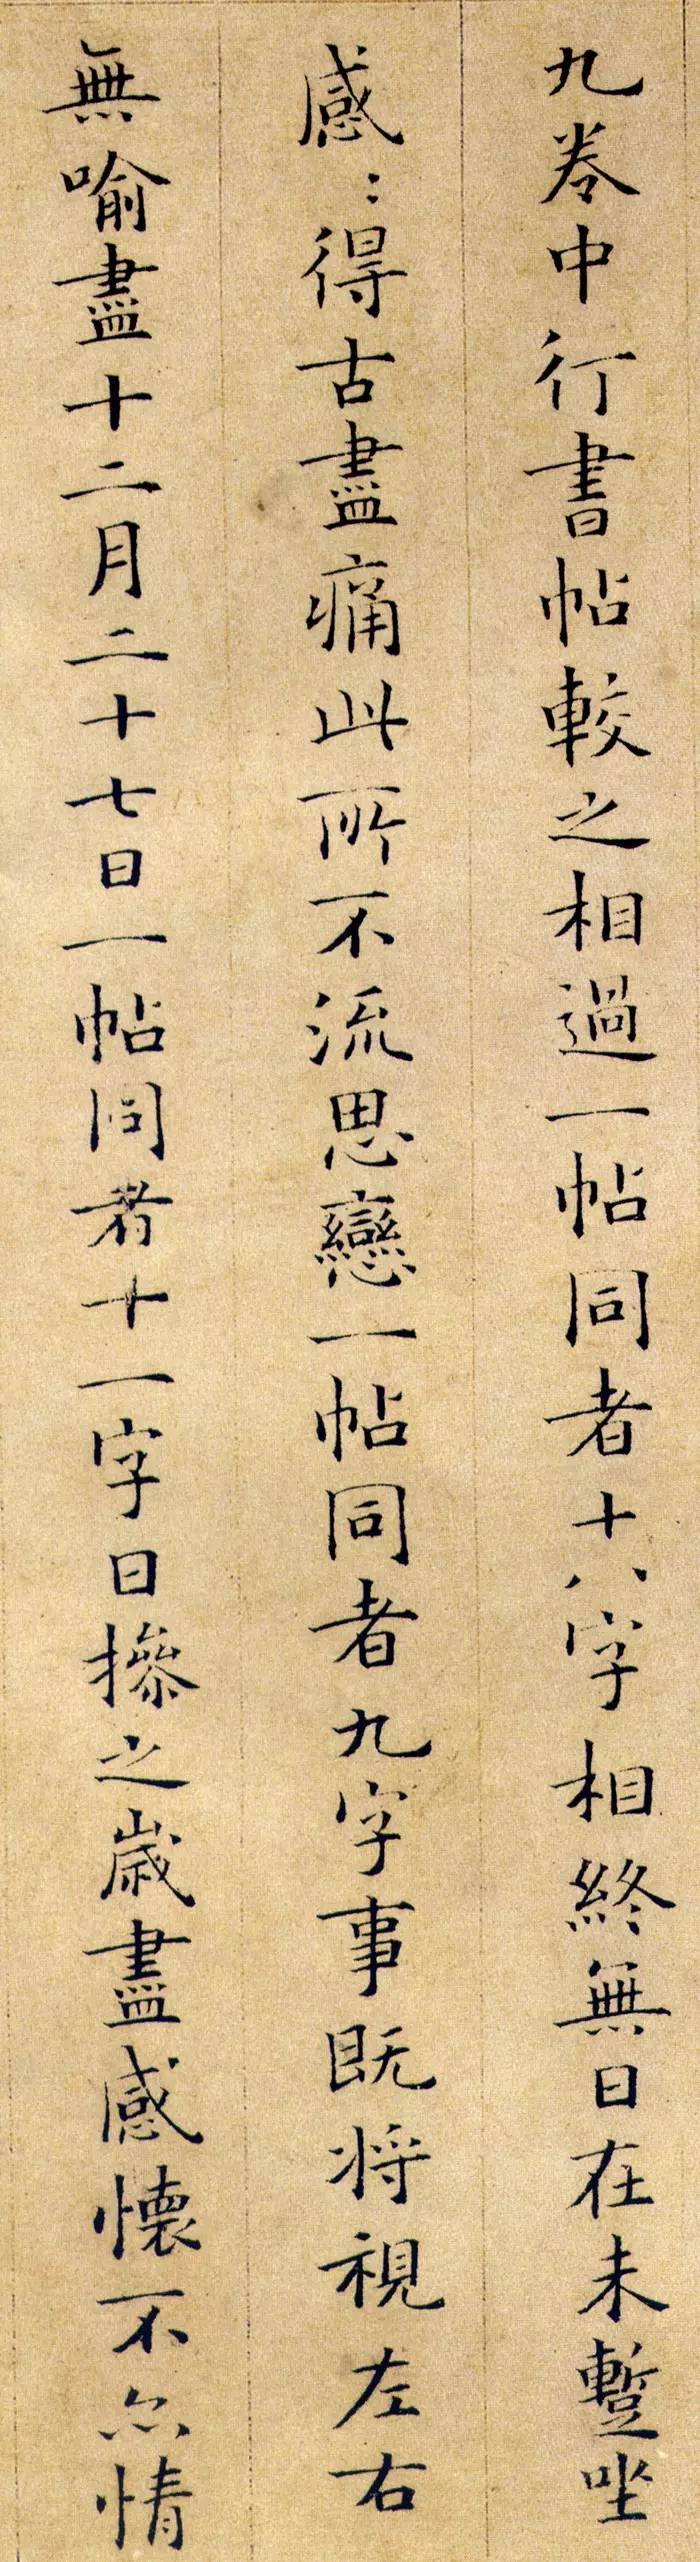 九卷中行書帖較之相過一帖同者十八字相終無日在未蹔唑
感〻得古盡痛此所不流思戀一帖同者九字事既將視左右
無喻盡十二月二十七日一帖同者十一字日摻之歲盡感懷不亦情